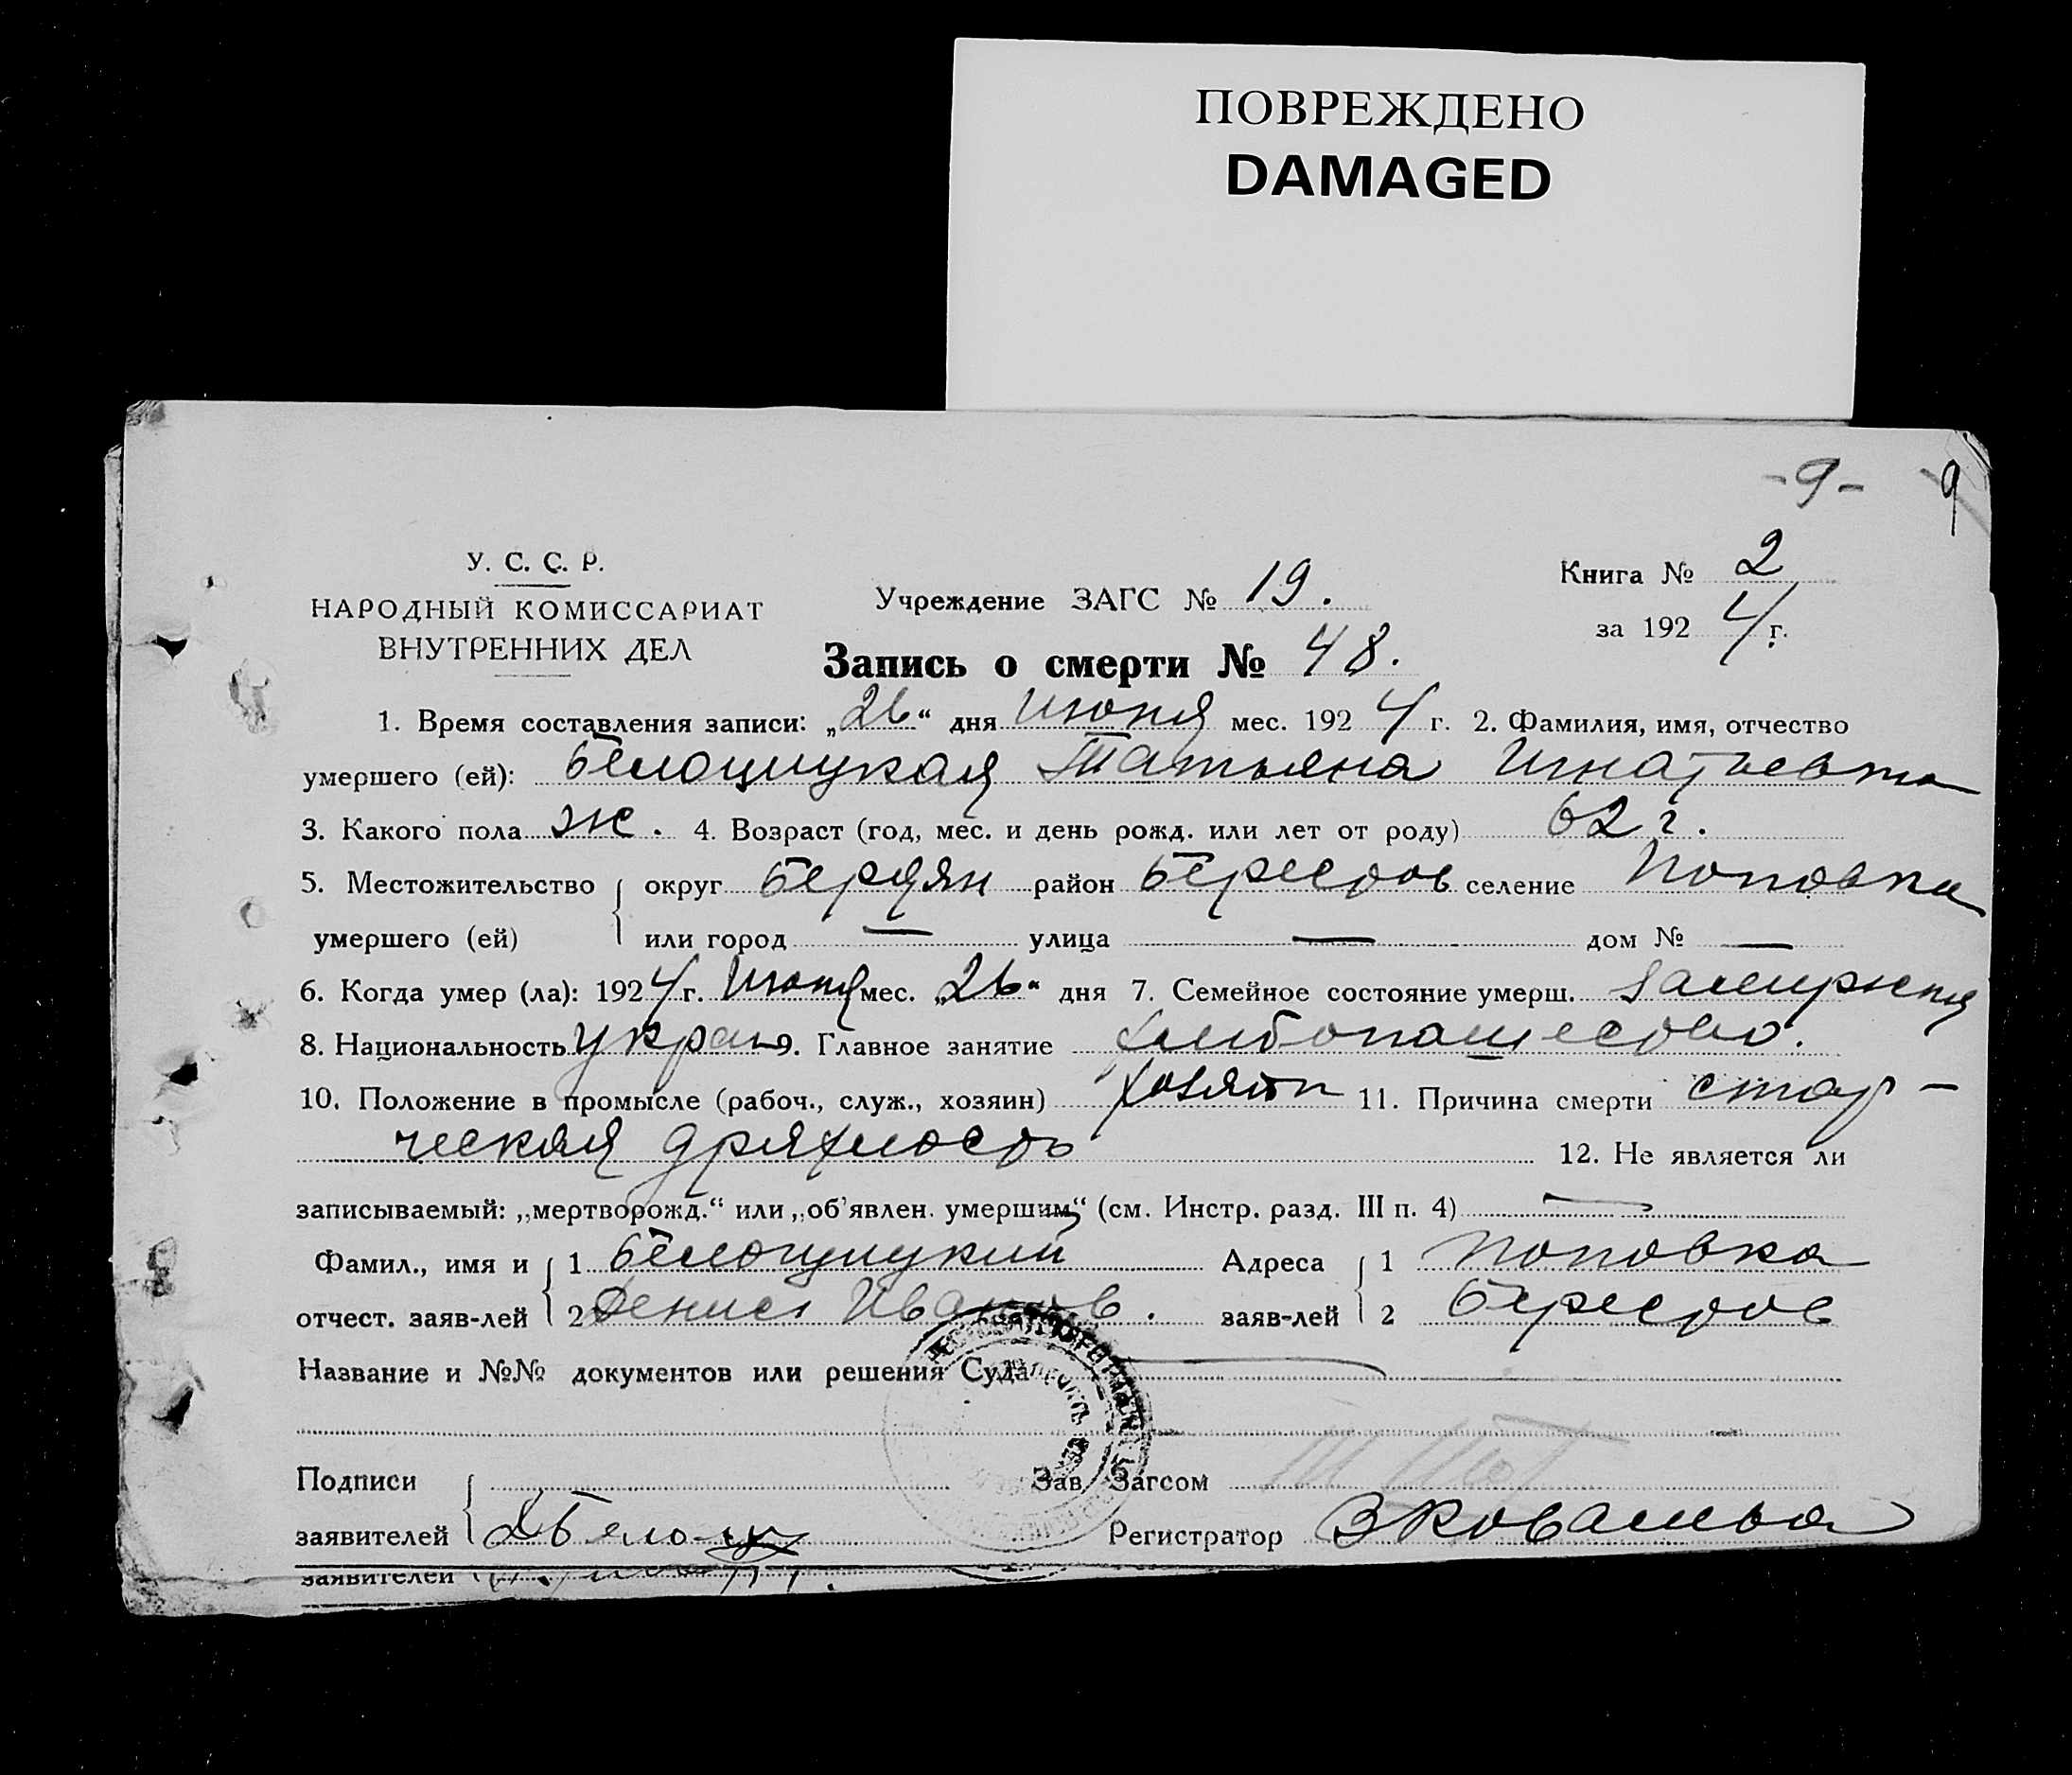 ПОВРЕЖДЕНО
DAMAGED
-9- 9
У. С. С. Р.
НАРОДНЫЙ КОМИССАРИАТ
ВНУТРЕННИХ ДЕЛ
Учреждение ЗАГС № 19.
Книга № 2
за 1924 г.
Запись о смерти № 48.
1. Время составления записи: „26“ дня июня мес. 1924 г. 2. Фамилия, имя, отчество
умершего (ей): Белоцицкая Татьяна Игнатьевна
3. Какого пола ж. 4. Возраст (год, мес. и день рожд. или лет от роду) 62 г.
5. Местожительство округ Бердян район Берестов селение Поповка
умершего (ей) или город — улица — дом № —
6. Когда умер (ла): 1924 г. Июня мес. „26“ дня 7. Семейное состояние умерш. замужняя
8. Национальность украин 9. Главное занятие хлебопашество.
10. Положение в промысле (рабоч., служ., хозяин) хозяин 11. Причина смерти стар-
ческая дряхлость 12. Не является ли
записываемый: „мертворожд.“ или „об'явлен. умершим“ (см. Инстр. разд. III п. 4) —
Фамил., имя и 1 Белоцицкий Адреса 1 Поповка
отчест. заяв-лей 2 Денис Иванов. заяв-лей 2 Берестов
Название и №№ документов или решения Суда —
Подписи Зав. Загсом
заявителей ДБелоци Регистратор ВКовалева
заявителей